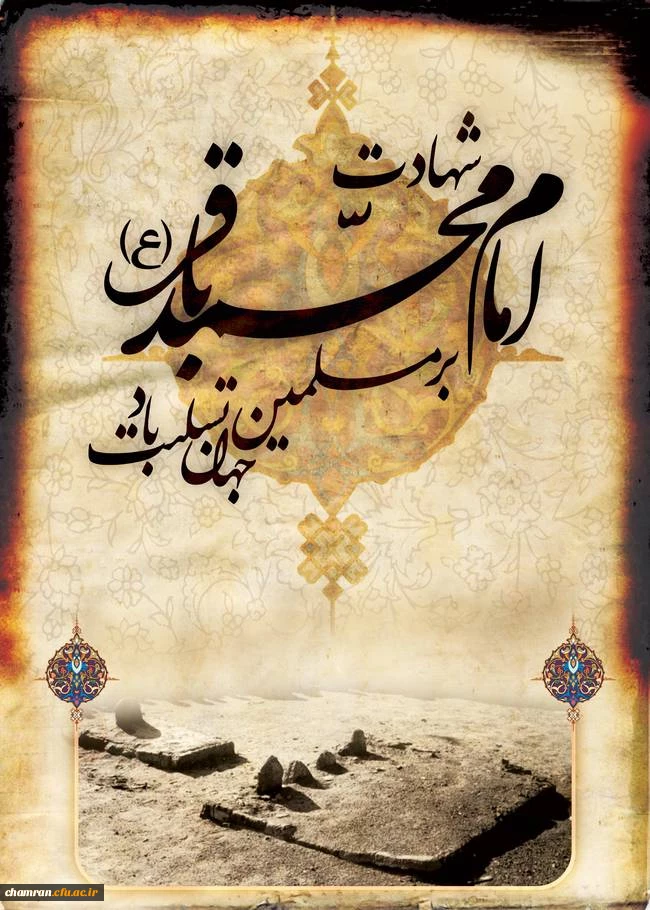 شهادت
امام محمّد باقر (ع)
بر مسلمین جهان تسلیت باد
chamran.cfu.ac.ir